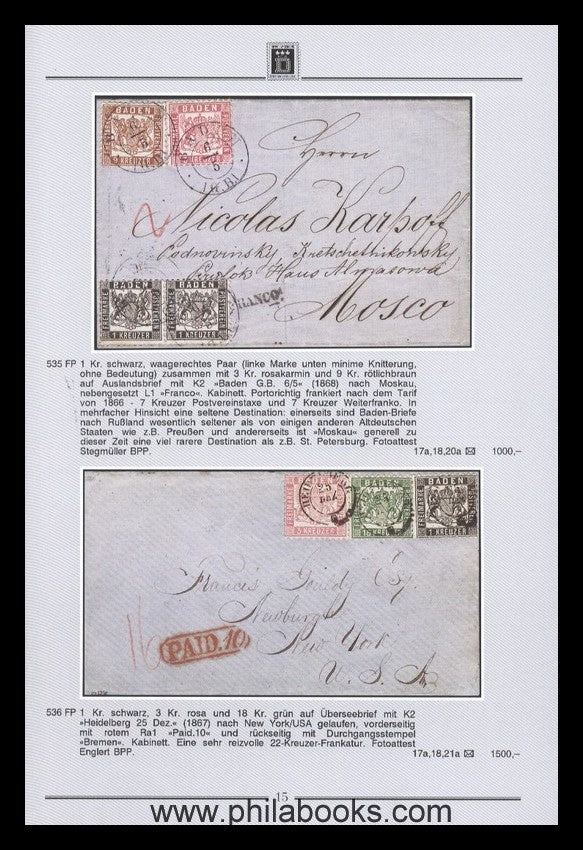 BADEN
BADEN
FREIMARKE
9 KREUZER
Herrn
Nicolas Karpoff
Podnovinsky, Kretschethikonsky
Pavlok Haus Almasowa
Mosco
FRANCO.
BADEN
BADEN
FREIMARKE
FREIMARKE
1 KREUZER
1 KREUZER
535 FP 1 Kr. schwarz, waagerechtes Paar (linke Marke unten minime Knitterung,
ohne Bedeutung) zusammen mit 3 Kr. rosakarmin und 9 Kr. rötlichbraun
auf Auslandsbrief mit K2 »Baden G.B. 6/5« (1868) nach Moskau,
nebengesetzt L1 »Franco«. Kabinett. Portorichtig frankiert nach dem Tarif
von 1866 - 7 Kreuzer Postvereinstaxe und 7 Kreuzer Weiterfranko. In
mehrfacher Hinsicht eine seltene Destination: einerseits sind Baden-Briefe
nach Rußland wesentlich seltener als von einigen anderen Altdeutschen
Staaten wie z.B. Preußen und andererseits ist »Moskau« generell zu
dieser Zeit eine viel rarere Destination als z.B. St. Petersburg. Fotoattest
Stegmüller BPP. 17a,18,20a ✉ 1000,–
HEIDELBERG
25
DEZ
BADEN
BADEN
FREIMARKE
3 KREUZER
1 KREUZER
Francis Gouldy Esq.
Newburgh
New York
U. S. A.
PAID.10
536 FP 1 Kr. schwarz, 3 Kr. rosa und 18 Kr. grün auf Überseebrief mit K2
»Heidelberg 25 Dez.« (1867) nach New York/USA gelaufen, vorderseitig
mit rotem Ra1 »Paid.10« und rückseitig mit Durchgangsstempel
»Bremen«. Kabinett. Eine sehr reizvolle 22-Kreuzer-Frankatur. Fotoattest
Englert BPP. 17a,18,21a ✉ 1500,–
15
www.philabooks.com